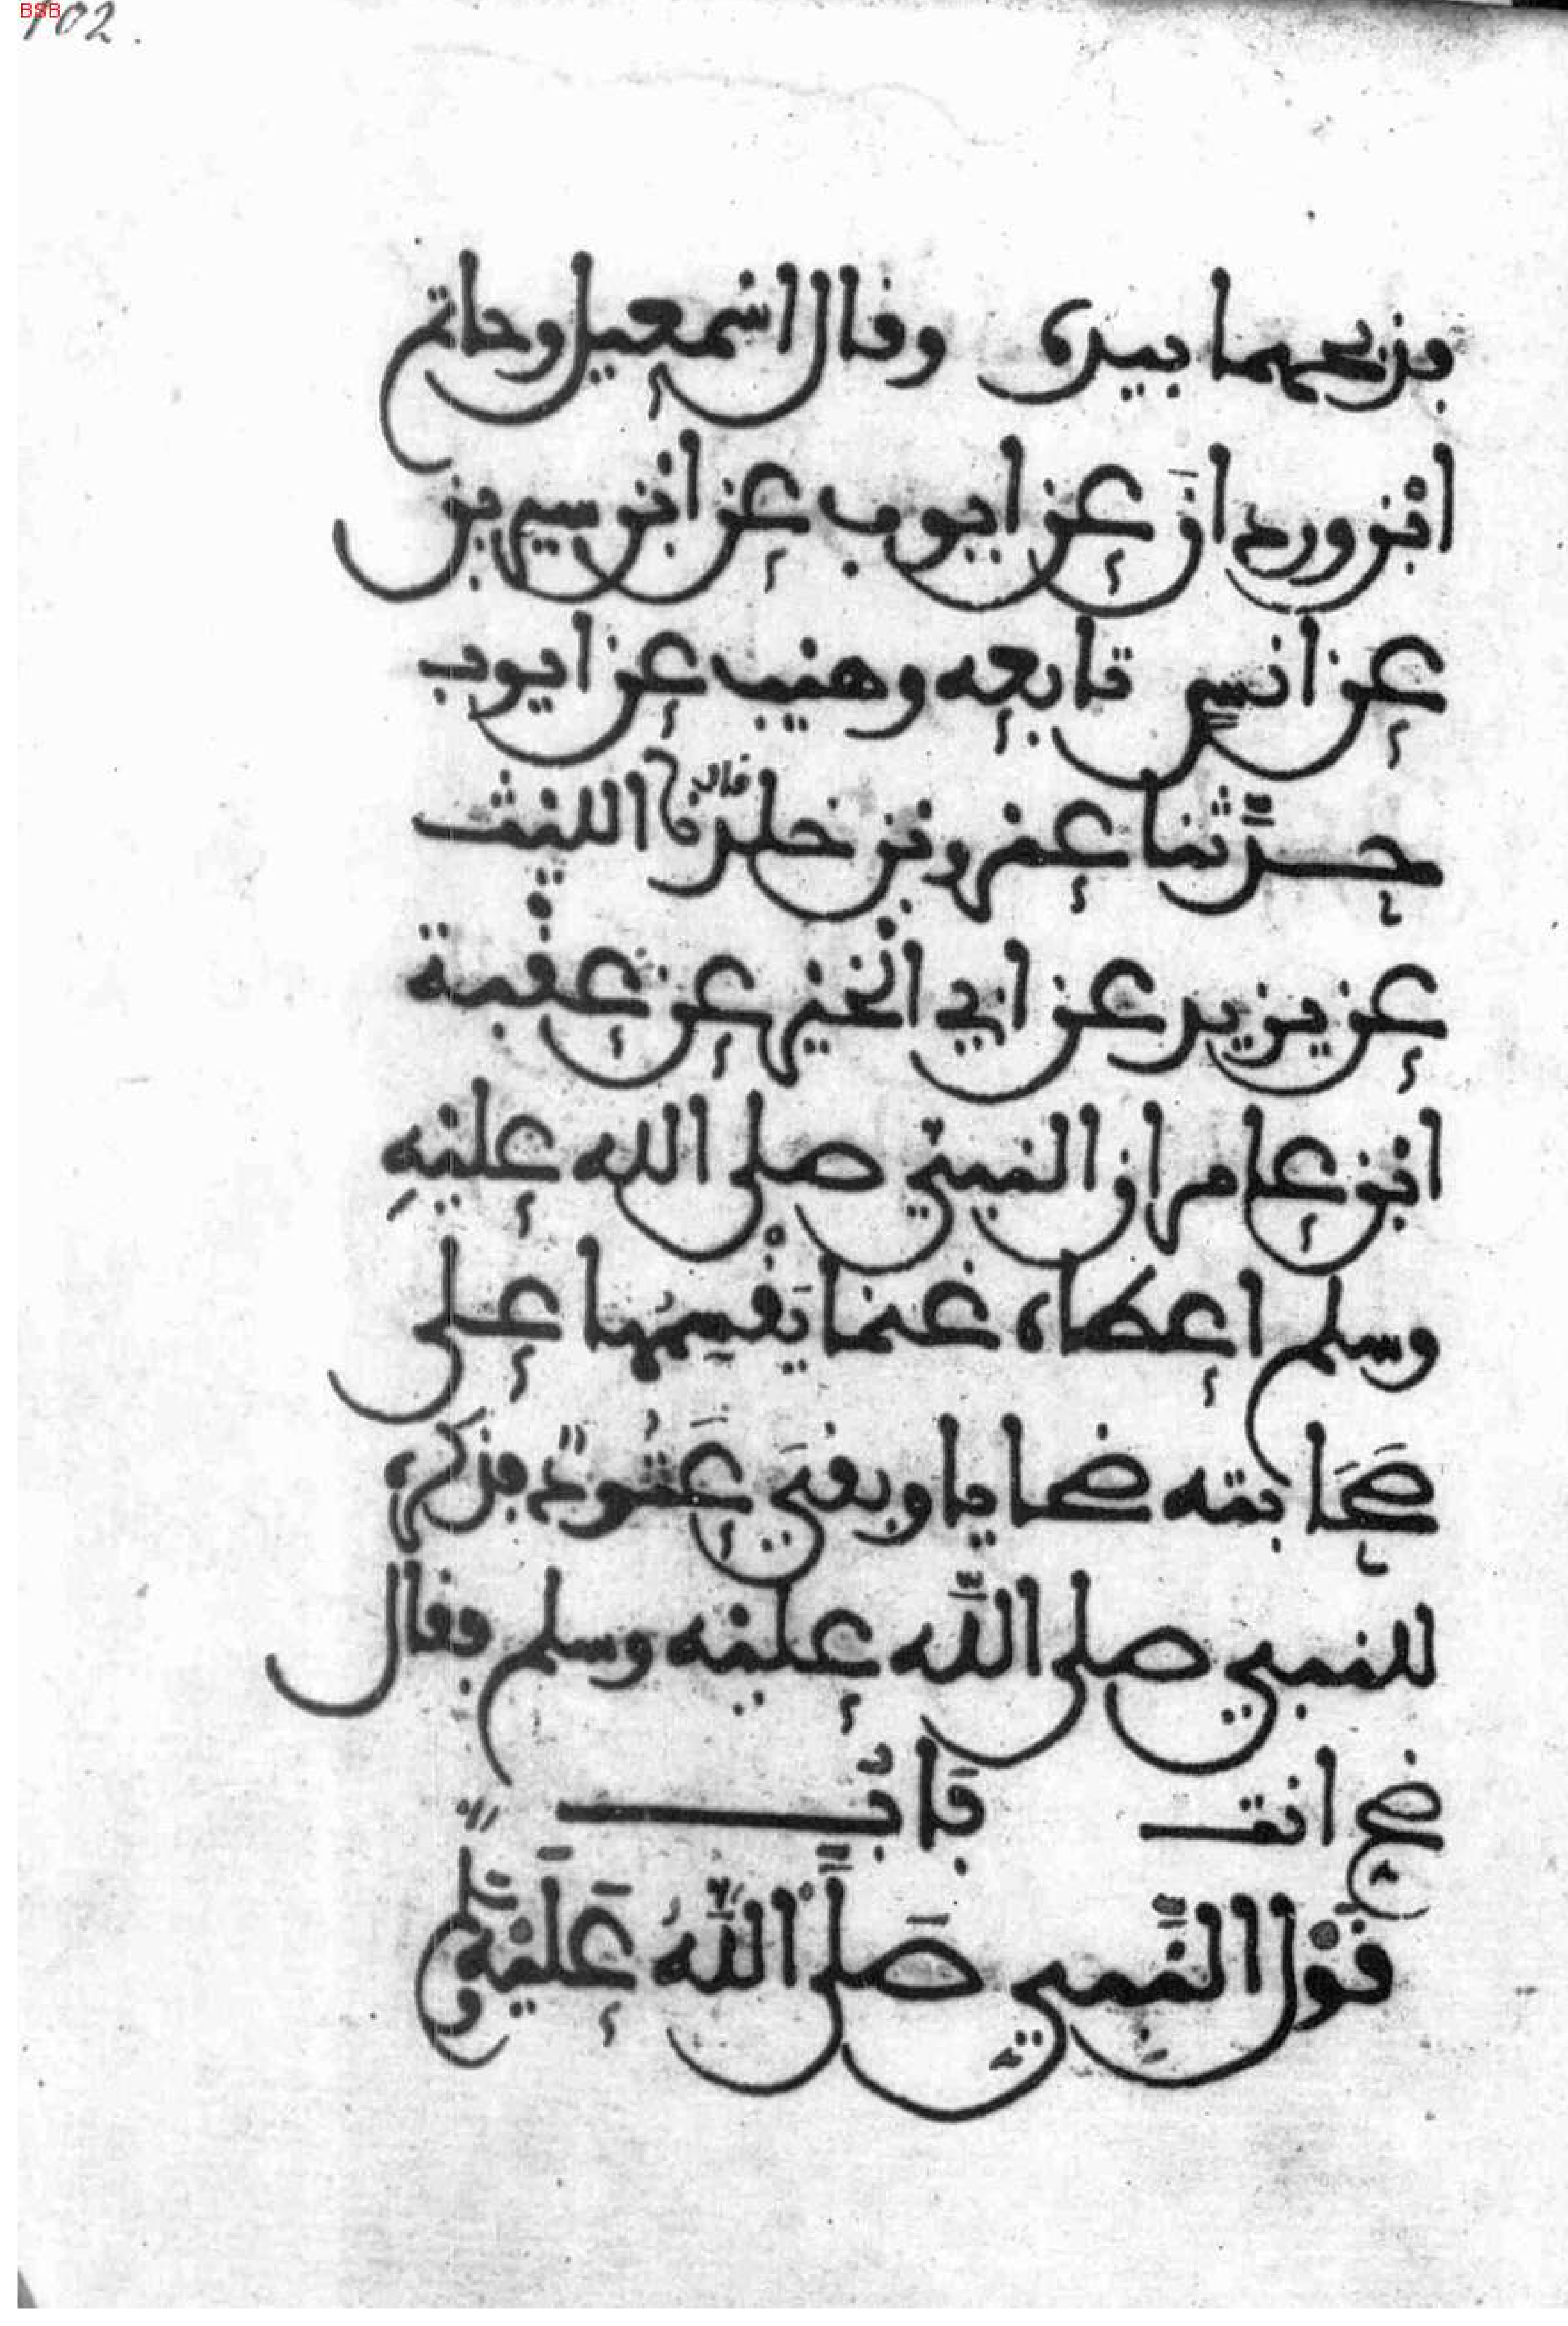 BSB
102.
فذبحهما بيده وقال اسمعيل وحاتم
ابن وردان عن ايوب عن ابن سيرين
عن انس تابعه وهيب عن ايوب
حدثنا عمرو بن خلد قال نا الليث
عن يزيد عن ابي الخير عن عقبة
ابن عامر ان النبي صلى الله عليه
وسلم اعطاه غنما يقسمها على
صحابته ضحايا وبقي عتود فذكره
للنبي صلى الله عليه وسلم فقال
ضح انت باب
قول النبي صلى الله عليه وسلم